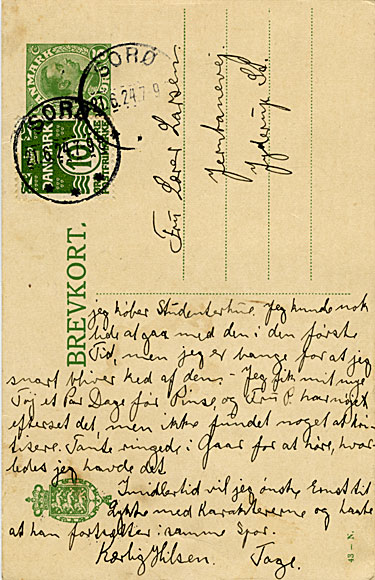 DANMARK
SORØ
21.6.24.7-9
SORØ
21.6.24.7-9
DANMARK
10
BREVKORT.
Fru Lærer Larsen.
Jernbanevej.
Jyderup St.
jeg køber Studenterhue. Jeg kunde nok
lide at gaa med den i den første
Tid, men jeg er bange for at jeg
snart bliver ked af den. - Jeg fik mit nye
Tøj et Par Dage før Pinse, og Fru P. har nøje
efterset det, men ikke fundet noget at kri-
tisere. Tante ringede i Gaar for at høre, hvor-
ledes jeg havde det.
Imidlertid vil jeg ønske Ernst til
Lykke med Karaktererne og haabe
at han fortsætter i samme Spor.
Kærlig Hilsen. Tage.
43 - N.